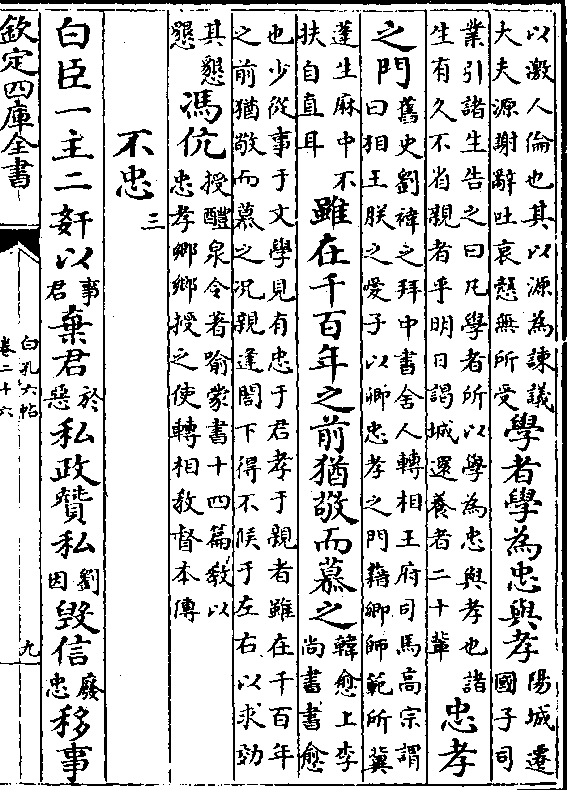 以激人倫也其以源為諫議
大夫源謝辭吐哀懇無所受
學者學為忠與孝
陽城遷
國子司
業引諸生告之曰凡學者所以學為忠與孝也諸
生有久不省親者乎明日謁城還養者二十輩
忠孝
之門
舊史劉禕之拜中書舍人轉相王府司馬高宗謂
曰相王朕之愛子以卿忠孝之門藉卿師範所冀
蓬生麻中不
扶自直耳
雖在千百年之前猶敬而慕之
韓愈上李
尚書書愈
也少從事于文學見有忠于君孝于親者雖在千百年
之前猶敬而慕之況親逢閤下得不候于左右以求効
其懇
懇
馮伉
授醴泉令著喻蒙書十四篇教以
忠孝鄉鄉授之使轉相教督本傳
不忠
三
白臣一主二姧以
事
君
棄君
於
惡
私政贊私
劉
因
毀信
廢
忠
移事
欽定四庫全書
白孔六帖
卷二十六
九